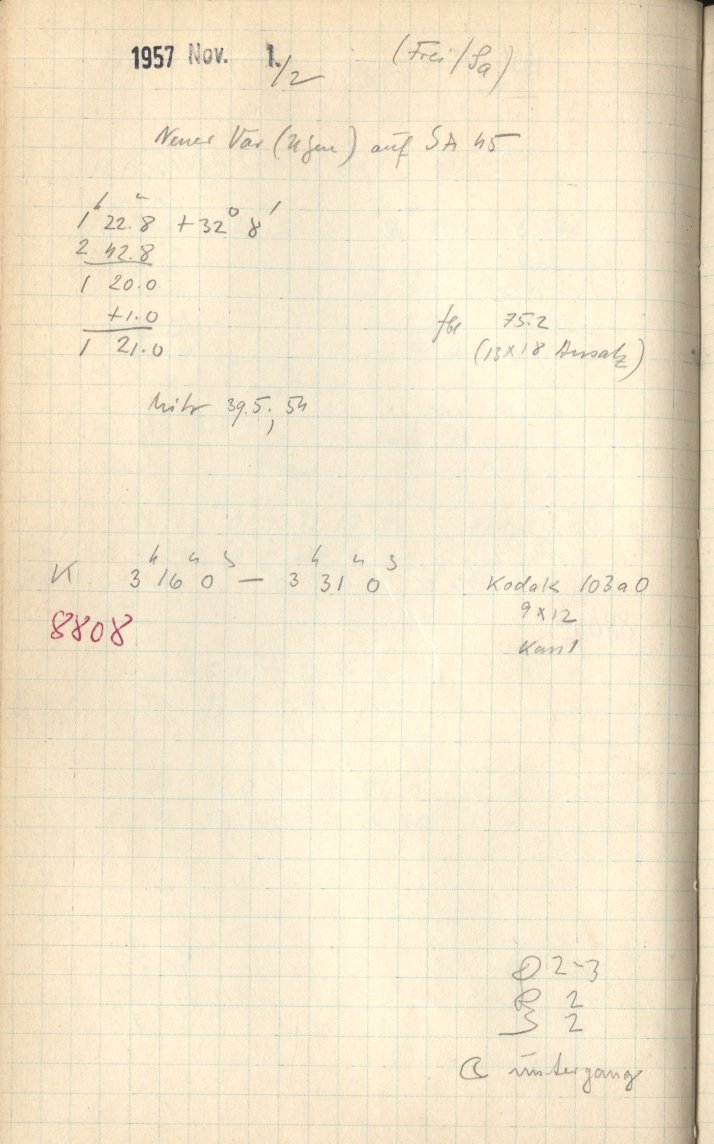 1957 Nov. 1./2 (Frei/Sa)
Neuer Var (UGem) auf SA 45
1ʰ 22.ᵐ8 +32° 8'
2 42.8
1 20.0
+1.0
1 21.0
75.2
(13x18 Ansatz)
Mitr 39.5; 54
K 3ʰ 16ᵐ 0ˢ — 3ʰ 31ᵐ 0ˢ Kodak 103a0
8808 9x12
Kass 1
D 2-3
R 2
S 2
☾ untergang